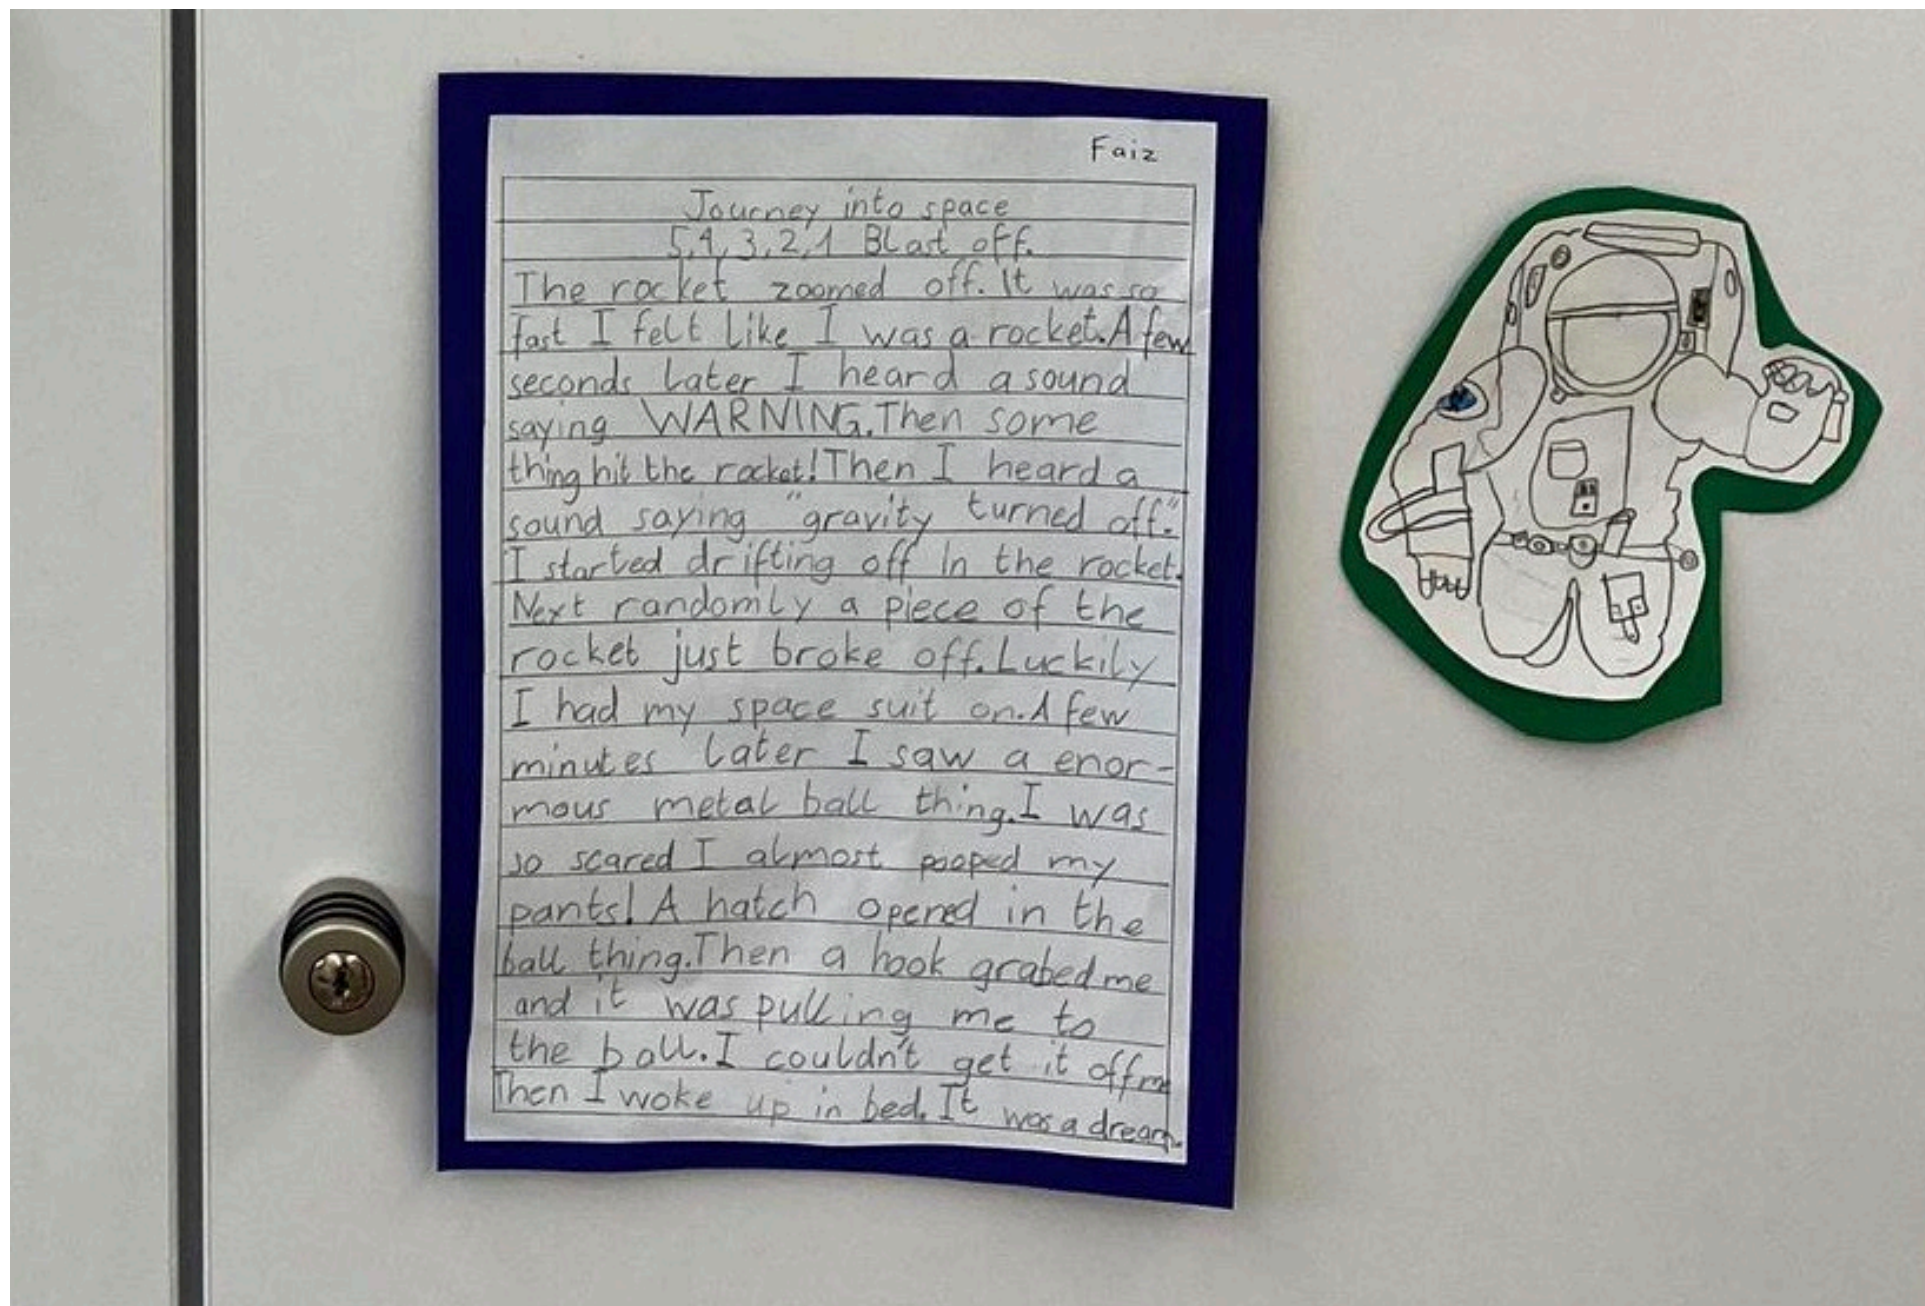 Faiz
Journey into space
5,4,3,2,1 Blast off.
The rocket zoomed off. It was so
fast I felt like I was a rocket. A few
seconds later I heard a sound
saying WARNING. Then some
thing hit the rocket! Then I heard a
sound saying "gravity turned off."
I started drifting off in the rocket.
Next randomly a piece of the
rocket just broke off. Luckily
I had my space suit on. A few
minutes later I saw a enor-
mous metal ball thing. I was
so scared I almost pooped my
pants! A hatch opened in the
ball thing. Then a hook grabed me
and it was pulling me to
the ball. I couldn't get it off me
Then I woke up in bed. It was a dream.